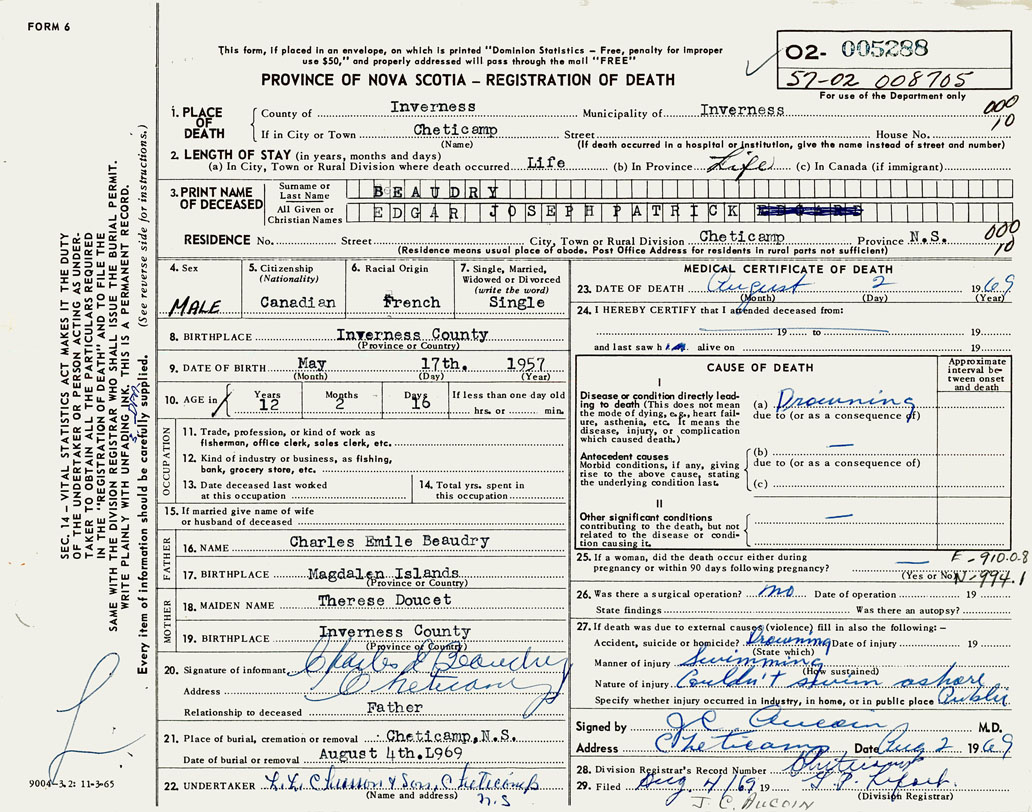 FORM 6
This form, if placed in an envelope, on which is printed "Dominion Statistics – Free, penalty for improper
use $50," and properly addressed will pass through the mail "FREE"
PROVINCE OF NOVA SCOTIA – REGISTRATION OF DEATH
O2- 005288
57-02 008705
For use of the Department only
SEC. 14 – VITAL STATISTICS ACT MAKES IT THE DUTY
OF THE UNDERTAKER OR PERSON ACTING AS UNDER-
TAKER TO OBTAIN ALL THE PARTICULARS REQUIRED
IN THE "REGISTRATION OF DEATH" AND TO FILE THE
SAME WITH THE DIVISION REGISTRAR WHO SHALL ISSUE THE BURIAL PERMIT.
WRITE PLAINLY WITH UNFADING INK. THIS IS A PERMANENT RECORD.
Every item of information should be carefully supplied. (See reverse side for instructions.)
1. PLACE OF DEATH
County of Inverness Municipality of Inverness
000
10
If in City or Town Cheticamp Street House No.
(Name) (If death occurred in a hospital or institution, give the name instead of street and number)
2. LENGTH OF STAY (in years, months and days)
(a) In City, Town or Rural Division where death occurred Life (b) In Province Life (c) In Canada (if immigrant)
3. PRINT NAME OF DECEASED
Surname or Last Name BEAUDRY
All Given or Christian Names EDGAR JOSEPH PATRICK
RESIDENCE No. Street City, Town or Rural Division Cheticamp Province N.S.
000
10
(Residence means usual place of abode. Post Office Address for residents in rural parts not sufficient)
4. Sex
MALE
5. Citizenship
(Nationality)
Canadian
6. Racial Origin
French
7. Single, Married,
Widowed or Divorced
(write the word)
Single
8. BIRTHPLACE Inverness County
(Province or Country)
9. DATE OF BIRTH May 17th. 1957
(Month) (Day) (Year)
10. AGE in Years Months Days If less than one day old
12 2 16 hrs. or min.
OCCUPATION
11. Trade, profession, or kind of work as
fisherman, office clerk, sales clerk, etc.
12. Kind of industry or business, as fishing,
bank, grocery store, etc.
13. Date deceased last worked
at this occupation
14. Total yrs. spent in
this occupation
15. If married give name of wife
or husband of deceased
FATHER
16. NAME Charles Emile Beaudry
17. BIRTHPLACE Magdalen Islands
(Province or Country)
MOTHER
18. MAIDEN NAME Therese Doucet
19. BIRTHPLACE Inverness County
(Province or Country)
20. Signature of informant Charles E Beaudry
Address Cheticamp
Relationship to deceased Father
21. Place of burial, cremation or removal Cheticamp, N.S.
Date of burial or removal August 4th. L969
22. UNDERTAKER & Son, Cheticamp
(Name and address) N.S
9004–3.2: 11-3-65
MEDICAL CERTIFICATE OF DEATH
23. DATE OF DEATH August 2 1969
(Month) (Day) (Year)
24. I HEREBY CERTIFY that I attended deceased from:
19 to 19
and last saw h alive on 19
CAUSE OF DEATH
Approximate
interval be-
tween onset
and death
I
Disease or condition directly lead-
ing to death (This does not mean
the mode of dying, e.g., heart fail-
ure, asthenia, etc. It means the
disease, injury, or complication
which caused death.)
(a) Drowning
due to (or as a consequence of)
Antecedent causes
Morbid conditions, if any, giving
rise to the above cause, stating
the underlying condition last.
(b)
due to (or as a consequence of)
(c)
II
Other significant conditions
contributing to the death, but not
related to the disease or condi-
tion causing it.
25. If a woman, did the death occur either during
pregnancy or within 90 days following pregnancy?
(Yes or No)
E-910.0.8
N-994.1
26. Was there a surgical operation? no Date of operation 19
State findings Was there an autopsy?
27. If death was due to external causes (violence) fill in also the following:–
Accident, suicide or homicide? Drowning Date of injury 19
(State which)
Manner of injury Swimming
(How sustained)
Nature of injury Couldn't swim ashore
Specify whether injury occurred in Industry, in home, or in public place Public
Signed by J C Aucoin M.D.
Address Cheticamp Date Aug 2 1969
28. Division Registrar's Record Number
Cheticamp
29. Filed Aug 4/69 19
(Division Registrar)
J. C. AUCOIN